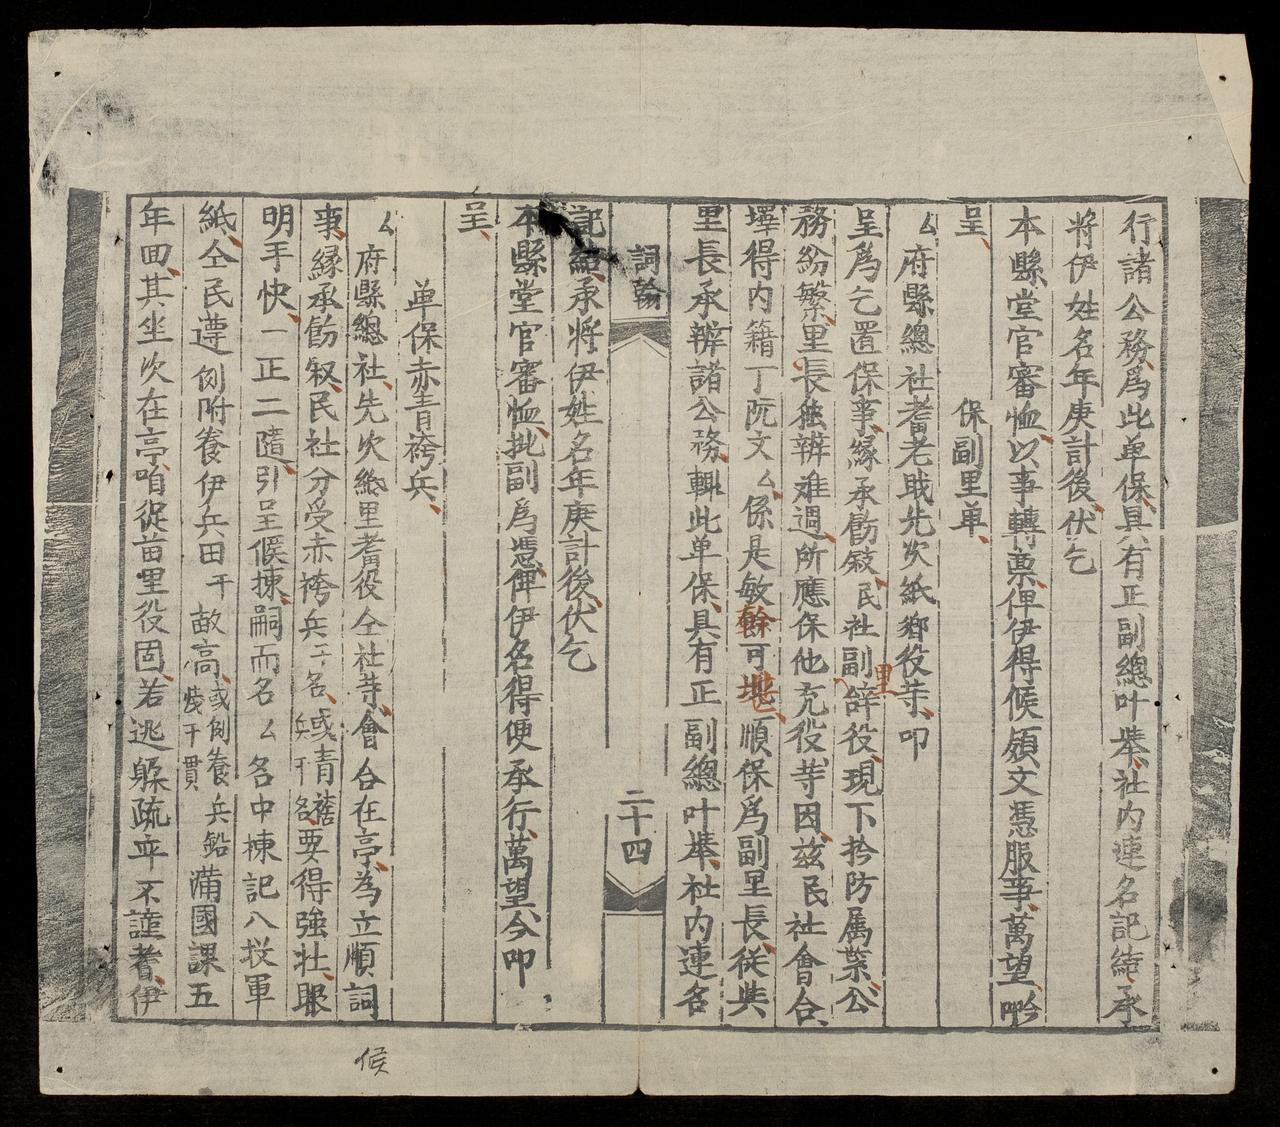 行諸公務、爲此单保、具有正副總叶舉、社内連名記結、承
將伊姓名年庚計後、伏乞
本縣堂官審恤、以事轉禀、俾伊得候頒文憑服事、萬望、吟
呈、
保副里单、
厶府縣總社耆老戢先次紙鄉役等、叩
呈爲乞置保事、緣承飭叙、民社副里辞役、現下扵防属棠公
務紛繁、里長独辨难週、所應保他充役、等因、兹民社會合、
擇得内籍丁阮文厶、係是敏幹可堪、順保爲副里長、従奘
里長承辨諸公務、輒此单保、具有正副總叶舉、社内連名
詞翰
二十四
記結、承將伊姓名年庚計後、伏乞
本縣堂官審恤、批副爲憑、俾伊名得便承行、萬望、今叩
呈、
单保赤青袴兵、
厶府縣總社、先次紙里耆役仝社等、會合在亭、為立順詞
事、緣承飭叙、民社分受赤袴兵干名、或青䄡兵干名、要得強壮、眼
明手快、一正二隨、引呈候揀、嗣而名厶名中揀記八投軍
紙、仝民遵例附養伊兵田干畝高、或例養兵鉛錢干貫 蒲國課五
年回、其坐次在亭、咱從苗里役固、若逃躱疏弃不謹者、伊
候